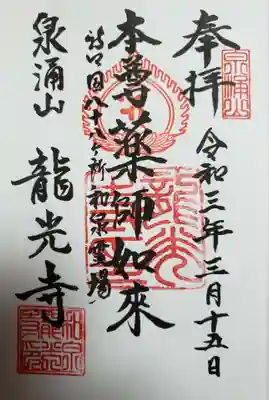 奉拝
令和三年三月十五日
本尊薬師如來
新四国八十八ヶ所和泉霊場
泉涌山
龍光寺